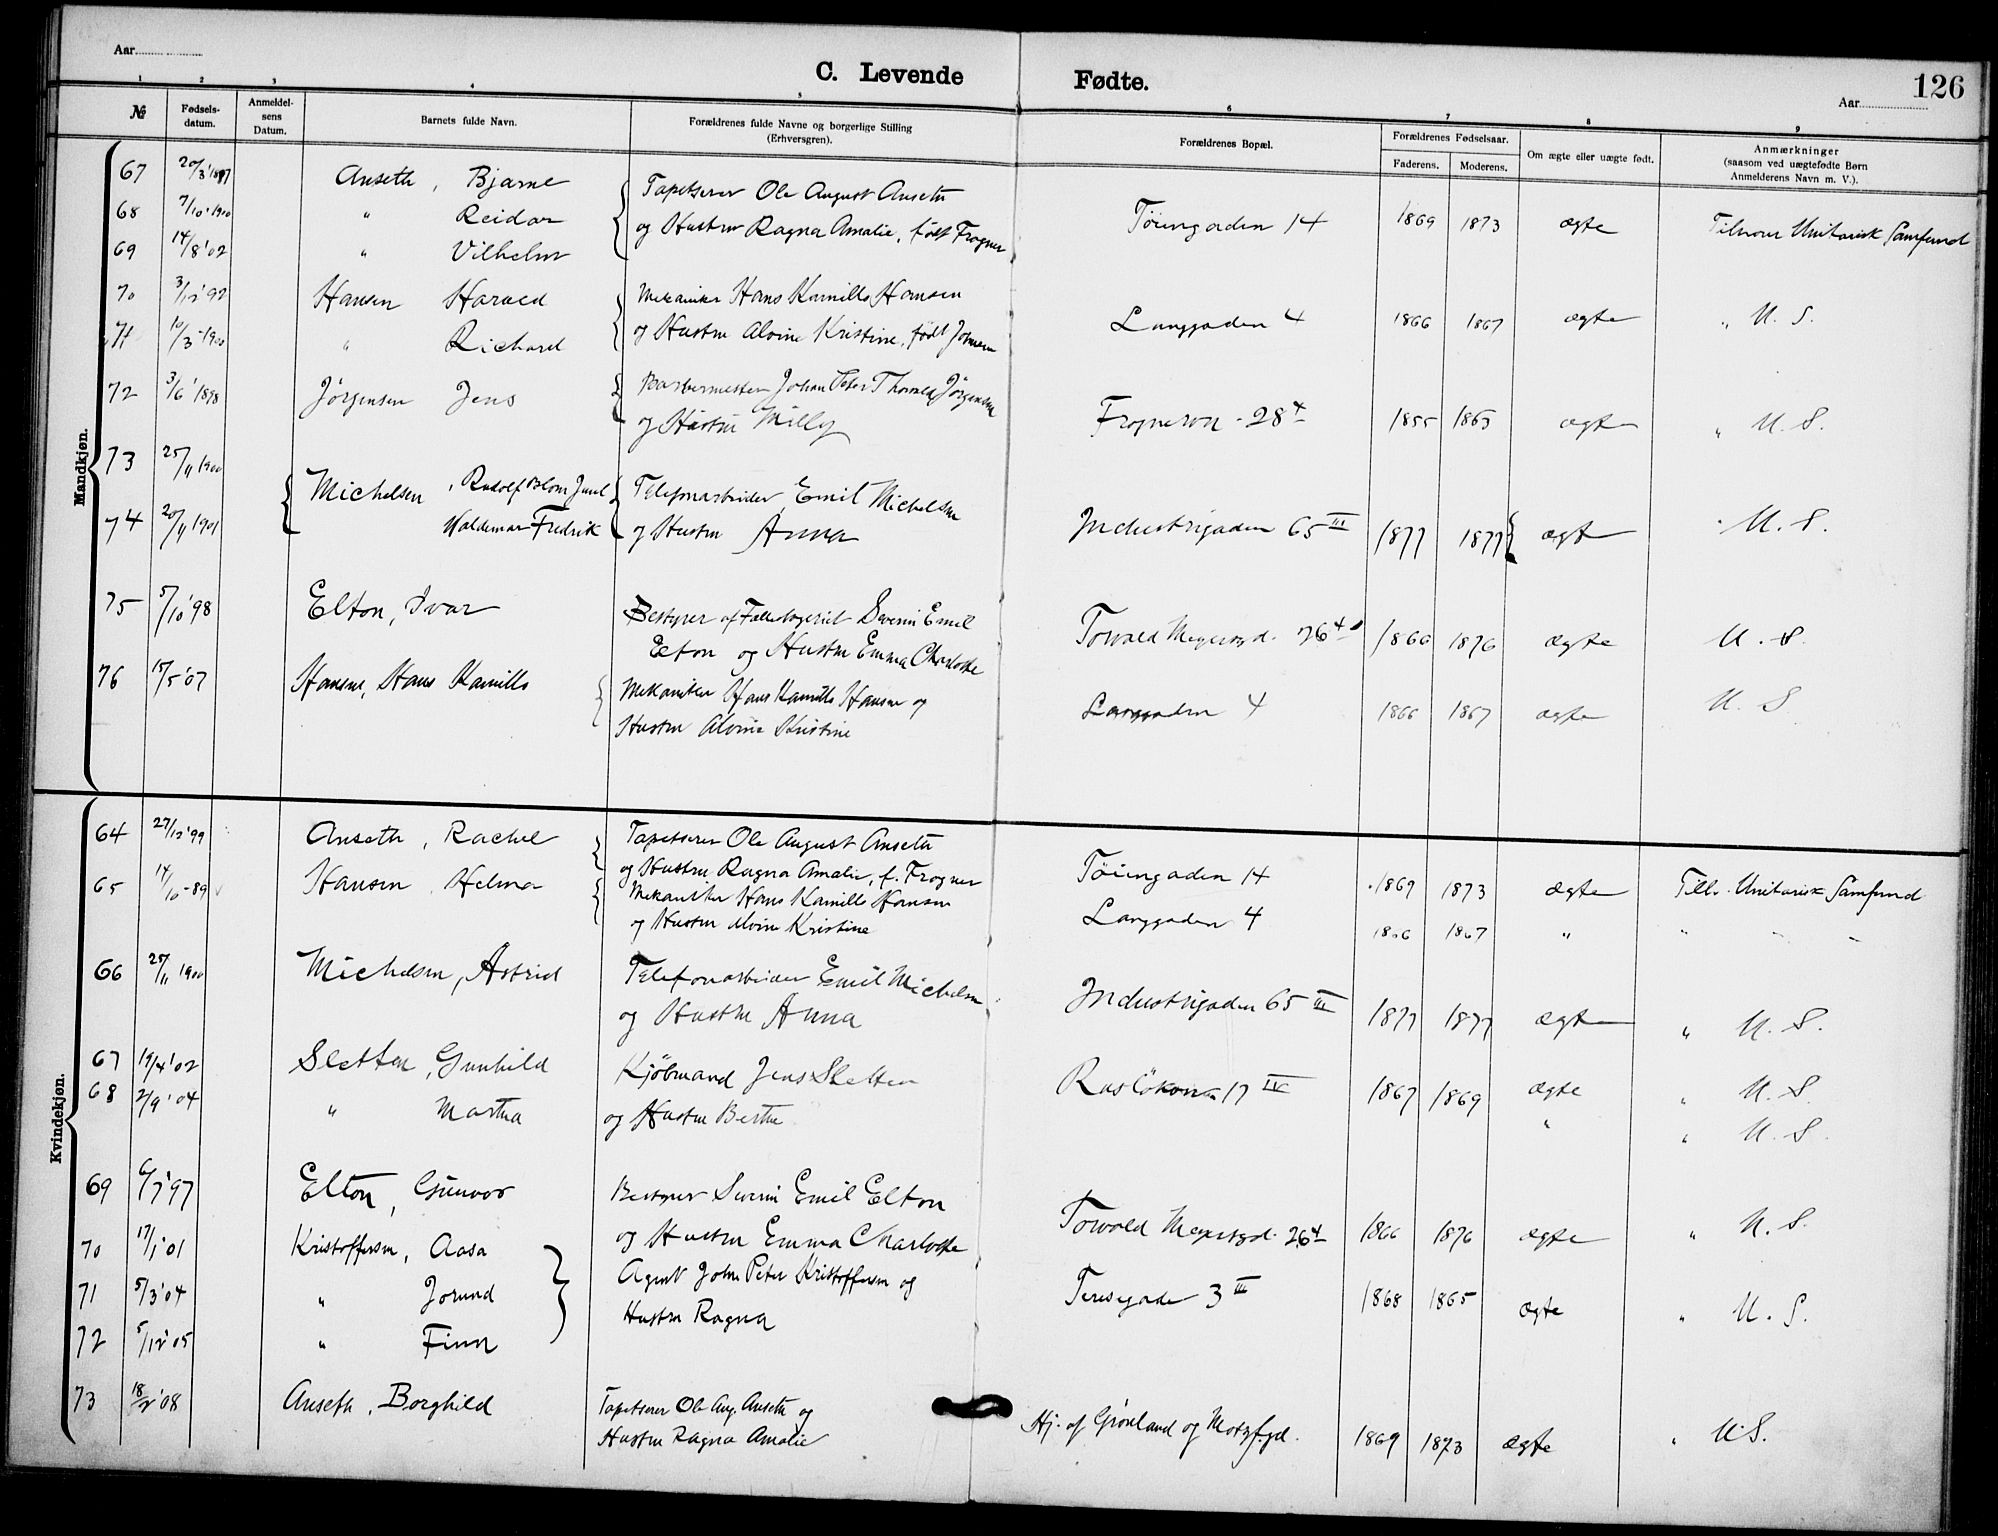 Aar
C. Levende Fødte.
Aar
126
1 2 3 4 5 6 7 8 9
№ Fødsels-datum. Anmeldel-sens Datum. Barnets fulde Navn. Forældrenes fulde Navne og borgerlige Stilling (Erhversgren). Forældrenes Bopæl. Forældrenes Fødselsaar. Faderens. Moderens. Om ægte eller uægte født. Anmærkninger (saasom ved uægtefødte Børn Anmelderens Navn m. V.).
Mandkjøn.
67 20/3 1897 Anseth, Bjarne Tapetserer Ole August Anseth
68 7/10 1900 " Reidar og Hustru Ragna Amalie, født Frogner Töiengaden 14 1869 1873 ægte Tilhører Unitarisk Samfund
69 14/8 '02 " Vilhelm
70 3/12 '92 Hansen Harald Mekaniker Hans Kamillo Hansen
71 10/3 - 1900 " Richard og Hustru Alvine Kristine, født Langgaden 4 1866 1867 ægte " U. S.
72 3/6 '1898 Jörgensen Jens Barbermester Johan Peter Thorvald Jörgensen
og Hustru Milly Frognervn. 28 4 1855 1863 ægte " U. S.
73 25/11 1900 Michelsen, Rudolf Blom Juul Telefonarbeider Emil Michelsen
74 20/11 1901 Waldemar Fredrik og Hustru Anna Industrigaden 65 III 1877 1877 ægte " U. S.
75 5/10 '98 Elton, Ivar Bestyrer af Severin Emil
Elton og Hustru Emma Charlotte Torvald Meyersgd. 26 4 1866 1876 ægte U. S.
76 15/5 '07 Hansen, Hans Kamillo Mekaniker Hans Kamillo Hansen og
Hustru Alvine Kristine Langgaden 4 1866 1867 ægte U. S
Kvindekjøn.
64 27/12 '99 Anseth, Rachel Tapetserer Ole August Anseth
og Hustru Ragna Amalie, f. Frogner Töiengaden 14 1869 1873 ægte Tilh. Unitarisk Samfund
65 14/10 - 89 Hansen, Helma Mekaniker Hans Kamillo Hansen
og Hustru Alvine Kristine Langgaden 4 1866 1867 " " " "
66 25/11 1900 Michelsen, Astrid Telefonarbeider Emil Michelsen
og Hustru Anna Industrigaden 65 III 1877 1877 ægte " U. S.
67 19/4 '02 Sletten, Gunhild Kjöbmand Jens Sletten Braslökvn. 17 IV 1867 1869 ægte " U. S.
68 2/9 '04 " Martha og Hustru Berthe " " U. S.
69 6/7 '97 Elton, Gunvor Bestyrer Severin Emil Elton
og Hustru Emma Charlotte Torvald Meyersgd. 26 4 1866 1876 ægte " U. S.
70 17/1 '01 Kristoffersen, Aasa Agent John Peter Kristoffersen og
71 5/3 '04 " Jorund Hustru Ragna Teresegade 3 III 1868 1865 ægte " U. S.
72 5/12 '05 " Finn
73 18/2 '08 Anseth, Borghild Tapetserer Ole Aug. Anseth og
Hustru Ragna Amalie Hj. af Grönland og Motzf.gd. 1869 1873 ægte " U. S.